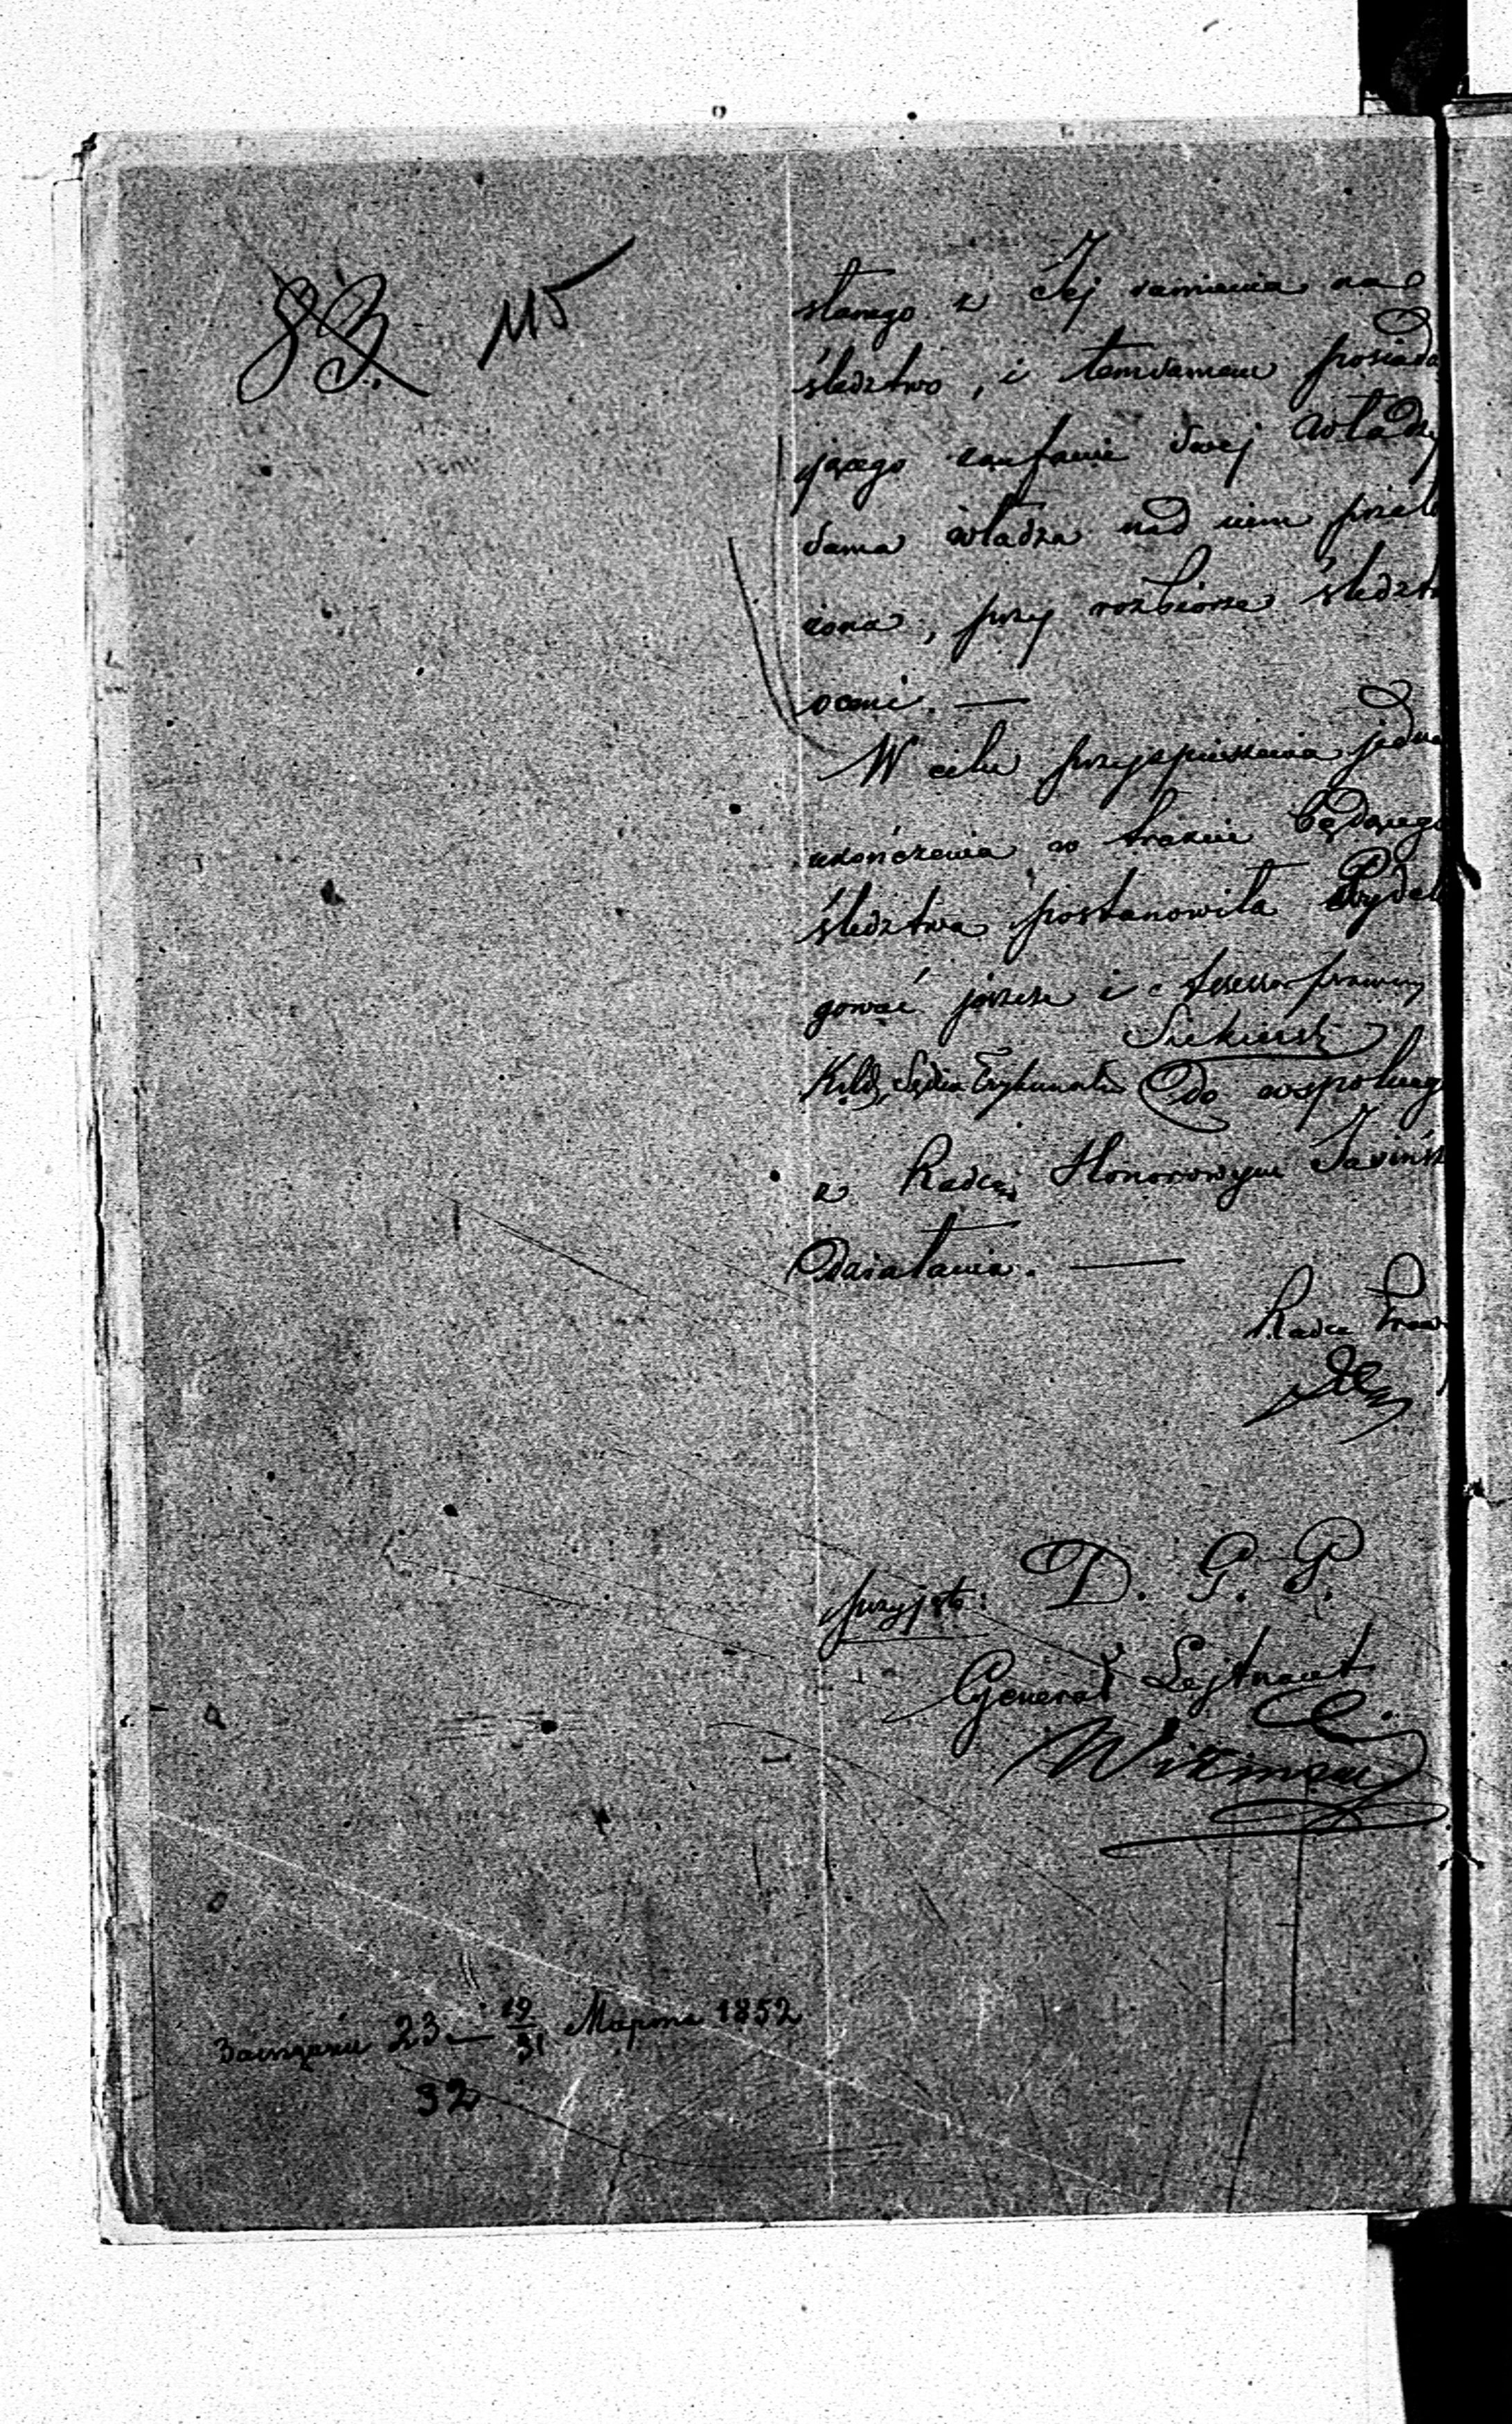 115
słanego z Jej ramienia na
śledztwo, i temsamem posiada
jącego zaufanie swej Władzy
sama władza nad niem przeło
żona, przy rozbiorze śledzt
oceni. —
W celu przyspieszenia jedna
ukończenia w trakcie będącego
śledztwa postanowiła Wydele
gować jeszcze i Assessor prawny
Siekierski
Sędzia Trybunału do wspólneg
z Radcą Honorowym Jasińsk
działania. —
Radca Praw
przyjęto: D. G. G.
Generał Lejtnant
23 — 19/31 Марта 1852
32